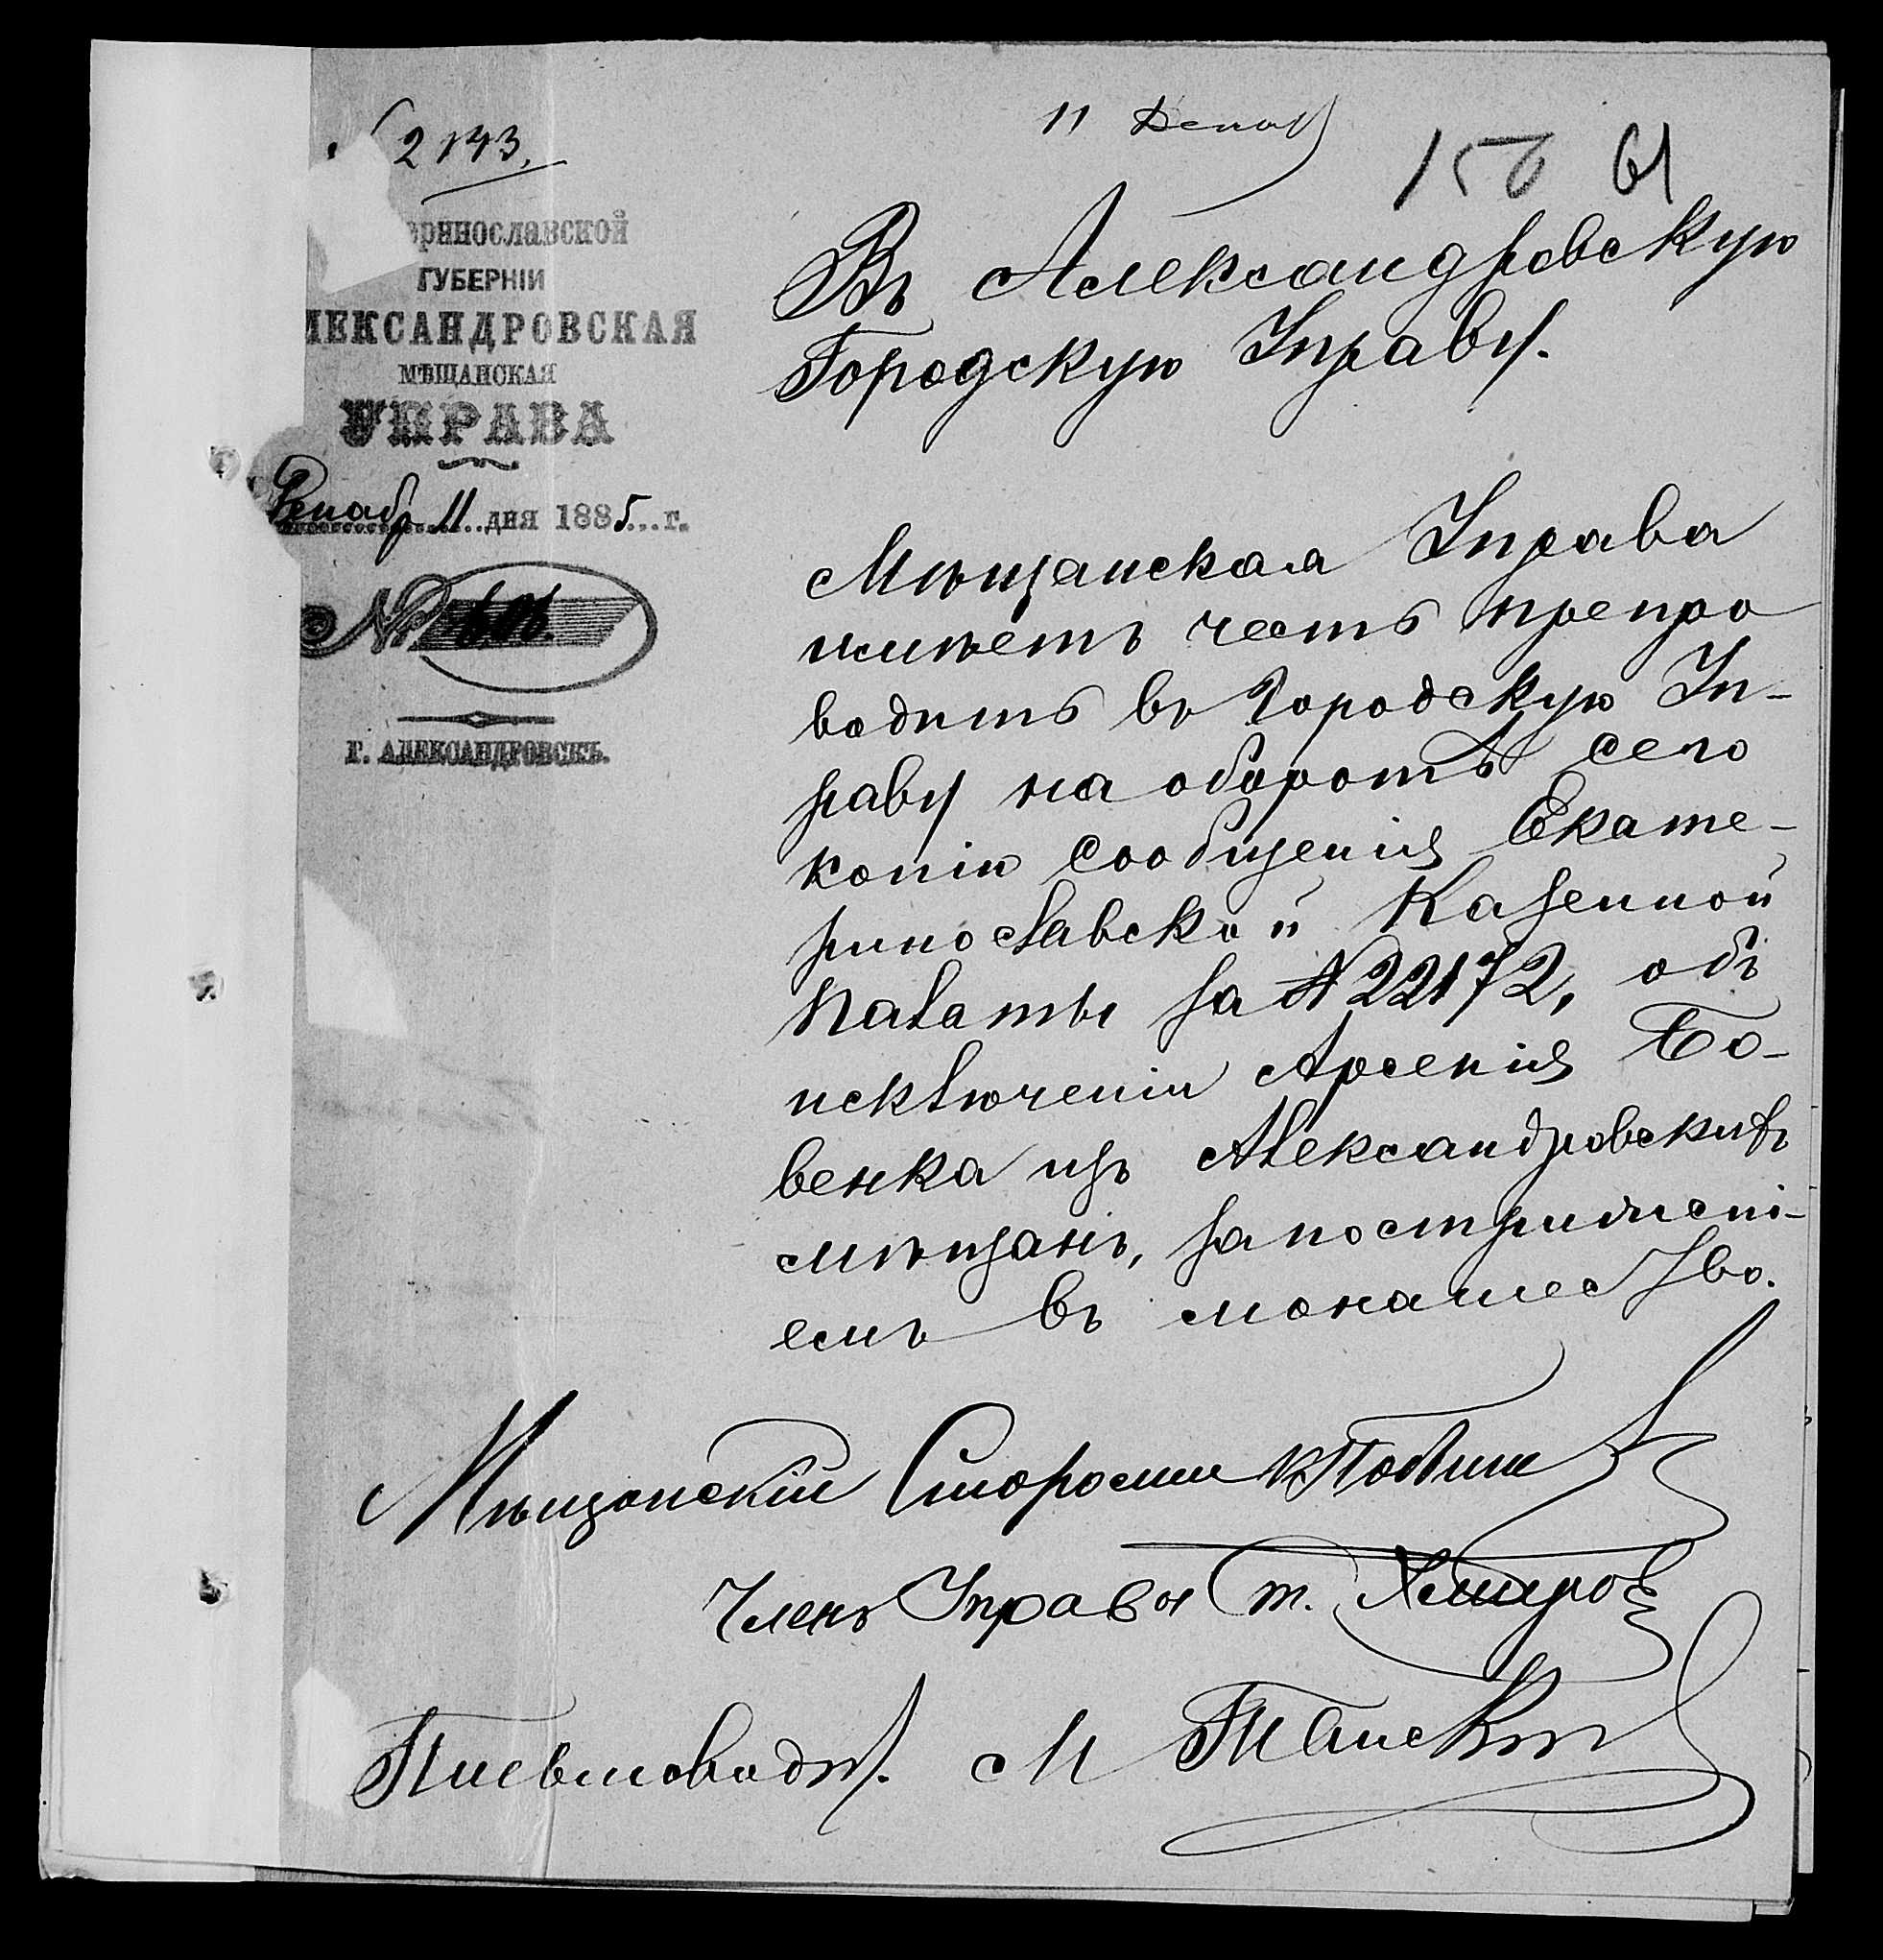 2143.
11 Декаб
150 61
ГУБЕРНІИ
МѢЩАНСКАЯ
УПРАВА
Декабр 11 дня 1885 г.
№ 606
Г. АЛЕКСАНДРОВСКЪ.
Въ Александровскую
Городскую Управу.
Мѣщанская Управа
имѣетъ честь препро
водить въ Городскую Уп-
раву на оборотѣ сего
копію сообщенія Екате-
ринославской Казенной
Палаты за № 22172, объ
исключеніи Арсенія Бо-
венка изъ Александровскихъ
мѣщанъ, за постриженi-
емъ въ монашество.
Мѣщанскій Староста
Членъ Управы
Письмовод.